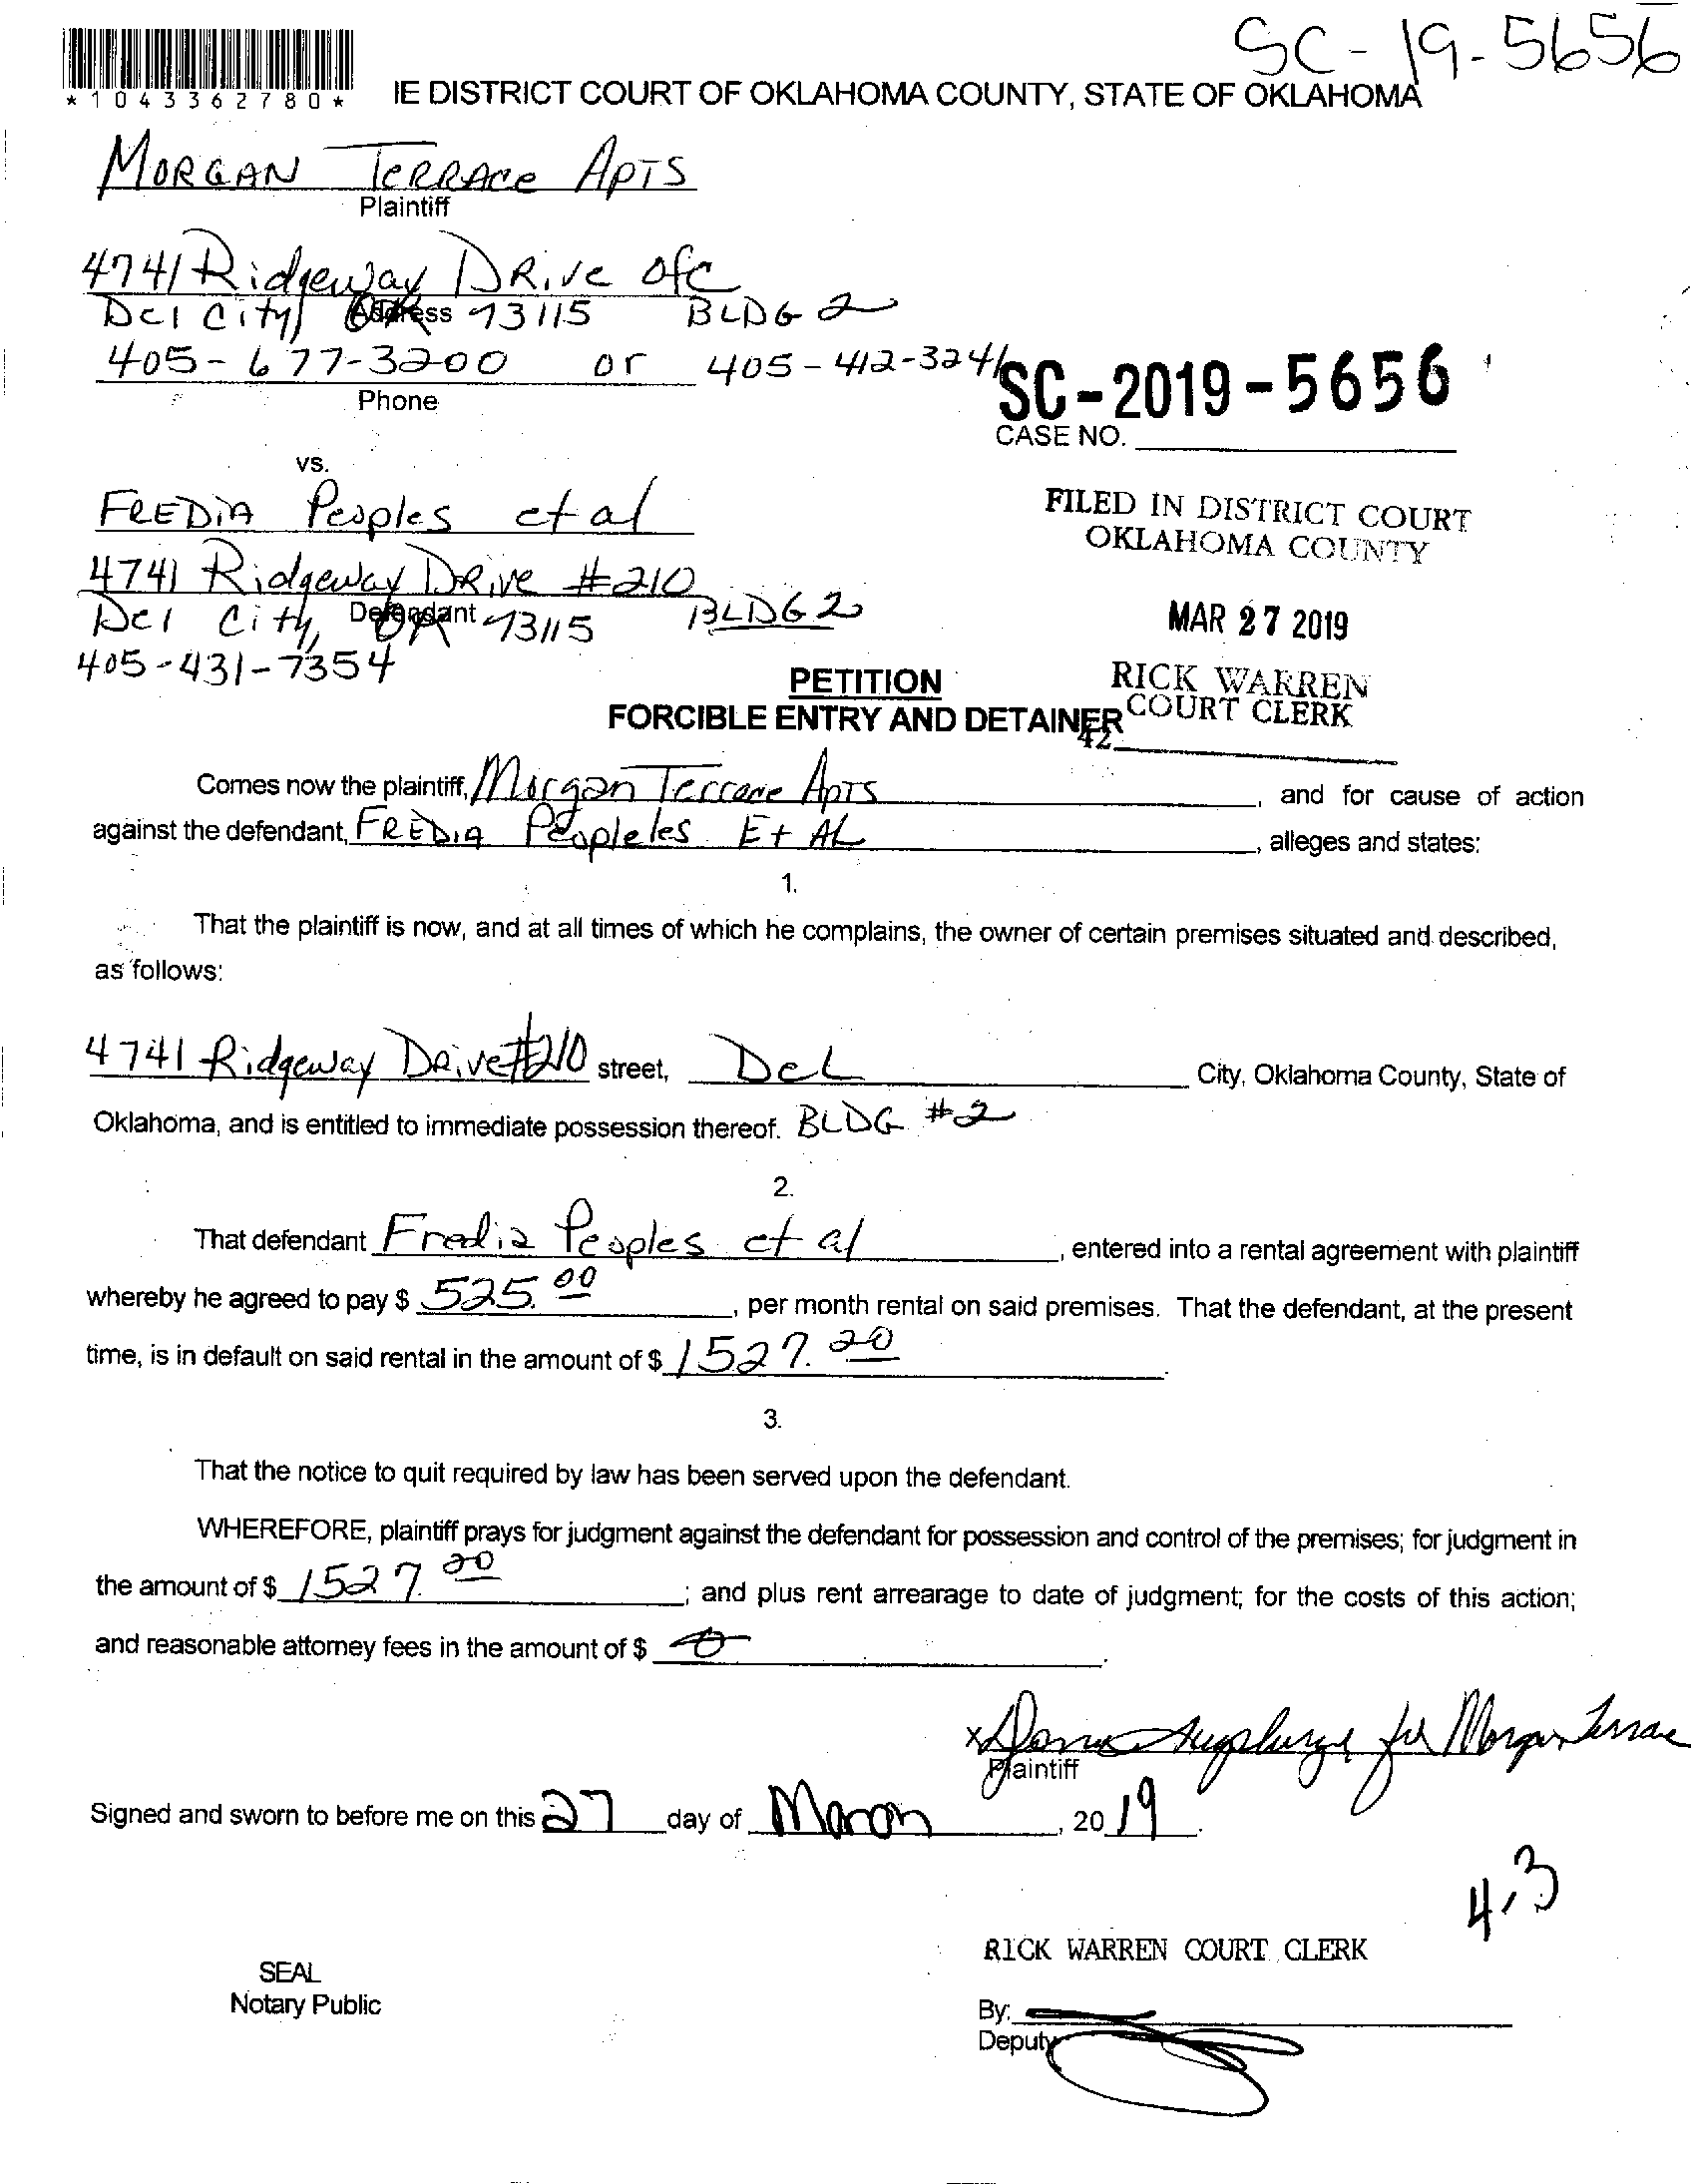 SC-19-5656
*1043362780*
IE DISTRICT COURT OF OKLAHOMA COUNTY, STATE OF OKLAHOMA
MORGAN TERRACE APTS
Plaintiff
4741 Ridgeway DRive ofc
Del City, OK 73115 BLDG 2
Address
405-677-3200 or 405-412-3241
Phone
SC-2019-5656
CASE NO.
vs.
FREDiA Peoples et al
FILED IN DISTRICT COURT
OKLAHOMA COUNTY
4741 Ridgeway DRive #210
Del City, OK 73115 BLDG 2
Defendant
MAR 27 2019
405-431-7354
PETITION
RICK WARREN
FORCIBLE ENTRY AND DETAINER
COURT CLERK
42
Comes now the plaintiff, Morgan Terrace Apts, and for cause of action
against the defendant, FREDiA Peopleles Et AL, alleges and states:
1.
That the plaintiff is now, and at all times of which he complains, the owner of certain premises situated and described,
as follows:
4741 Ridgeway DRive #210 street, Del City, Oklahoma County, State of
Oklahoma, and is entitled to immediate possession thereof. BLDG #2
2.
That defendant Fredia Peoples et al, entered into a rental agreement with plaintiff
whereby he agreed to pay $ 525.00, per month rental on said premises. That the defendant, at the present
time, is in default on said rental in the amount of $ 1527.20.
3.
That the notice to quit required by law has been served upon the defendant.
WHEREFORE, plaintiff prays for judgment against the defendant for possession and control of the premises; for judgment in
the amount of $ 1527.20; and plus rent arrearage to date of judgment; for the costs of this action;
and reasonable attorney fees in the amount of $ 0.
x for Morgan Terrace
Plaintiff
Signed and sworn to before me on this 27 day of March, 2019.
4.3
RICK WARREN COURT CLERK
SEAL
Notary Public
By:
Deputy